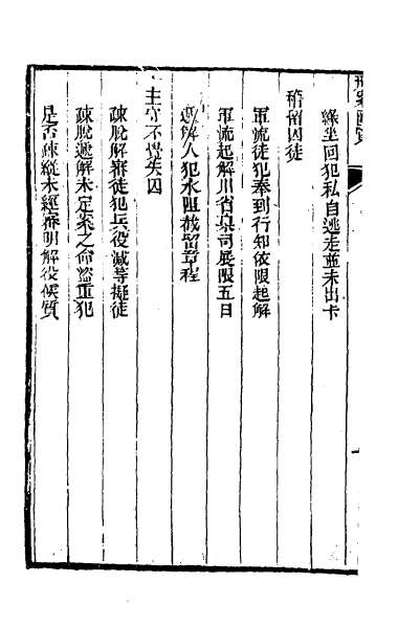 緣坐回犯私自逃走並未出卡
稽留囚徒
軍流徒犯奉到行知依限起解
軍流起解川省臬司展限五日
遞解人犯水阻截留章程
主守不覺失囚
疎脫解審徒犯兵役減等擬徒
疎脫遞解未定案之命盜重犯
是否疎縱未經審明解役候質